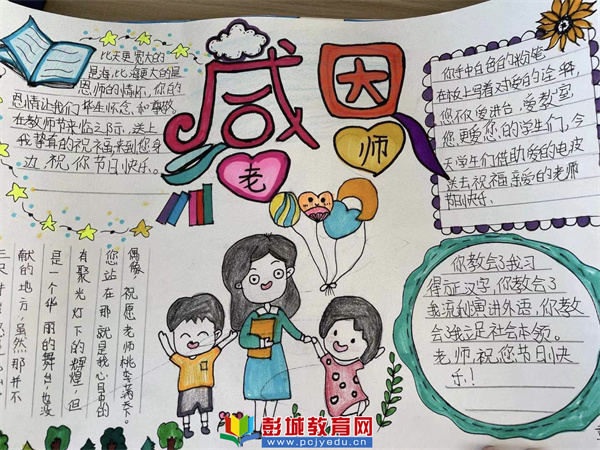 感恩
老师
比天更宽大的
是海,比海更大的是
恩师的情怀,你的
恩情让我们毕生怀念、和
在教师节来临之际,送上
我替有的祝福,来到您身
边 祝你节日快乐。
你手中白色的粉笔,
在板上写着对爱的诠释,
您不仅爱讲台,爱教室,
您更爱您的学生们,今
天学生们借助爱的电皮
送去祝福亲爱的老师
节日快乐
偶像,祝愿老师桃李满天下。
您站在那就是我心目中的
有聚光灯下的辉煌,但
是一个华丽的舞台,也没
献的地方,虽然那并不
你教会了我习
得证汉字,你教会了
我流利演讲外语,你教
会我立足社会本领。
老师,祝您节日快
乐!
彭城教育网
www.pcjyedu.cn